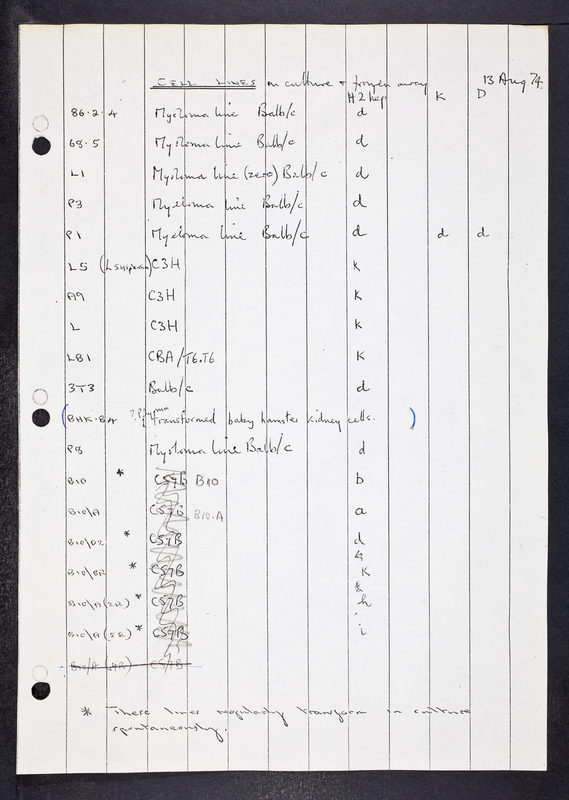 CELL LINES in culture + frozen away 13 Aug 74.
H2 hap K D
86·2·4 Myeloma line Balb/c d
68·5 Myeloma line Balb/c d
L1 Myeloma line (zero) Balb/c d
P3 Myeloma line Balb/c d
P1 Myeloma line Balb/c d d d
LS (L suspension) C3H K
A9 C3H K
L C3H K
LB1 CBA/T6.T6 K
3T3 Balb/c d
(BHK·BA Transformed baby hamster kidney cells. )
P8 Myeloma line Balb/c d
B10 * C57B B10 b
B10/A C57B B10.A a
B10/D2 * C57B d
B10/BR * C57B K
B10/A(2R) * C57B h
B10/A(5R) * C57B i
B10/A (4R) C57B
* These lines regularly transform in culture
spontaneously.